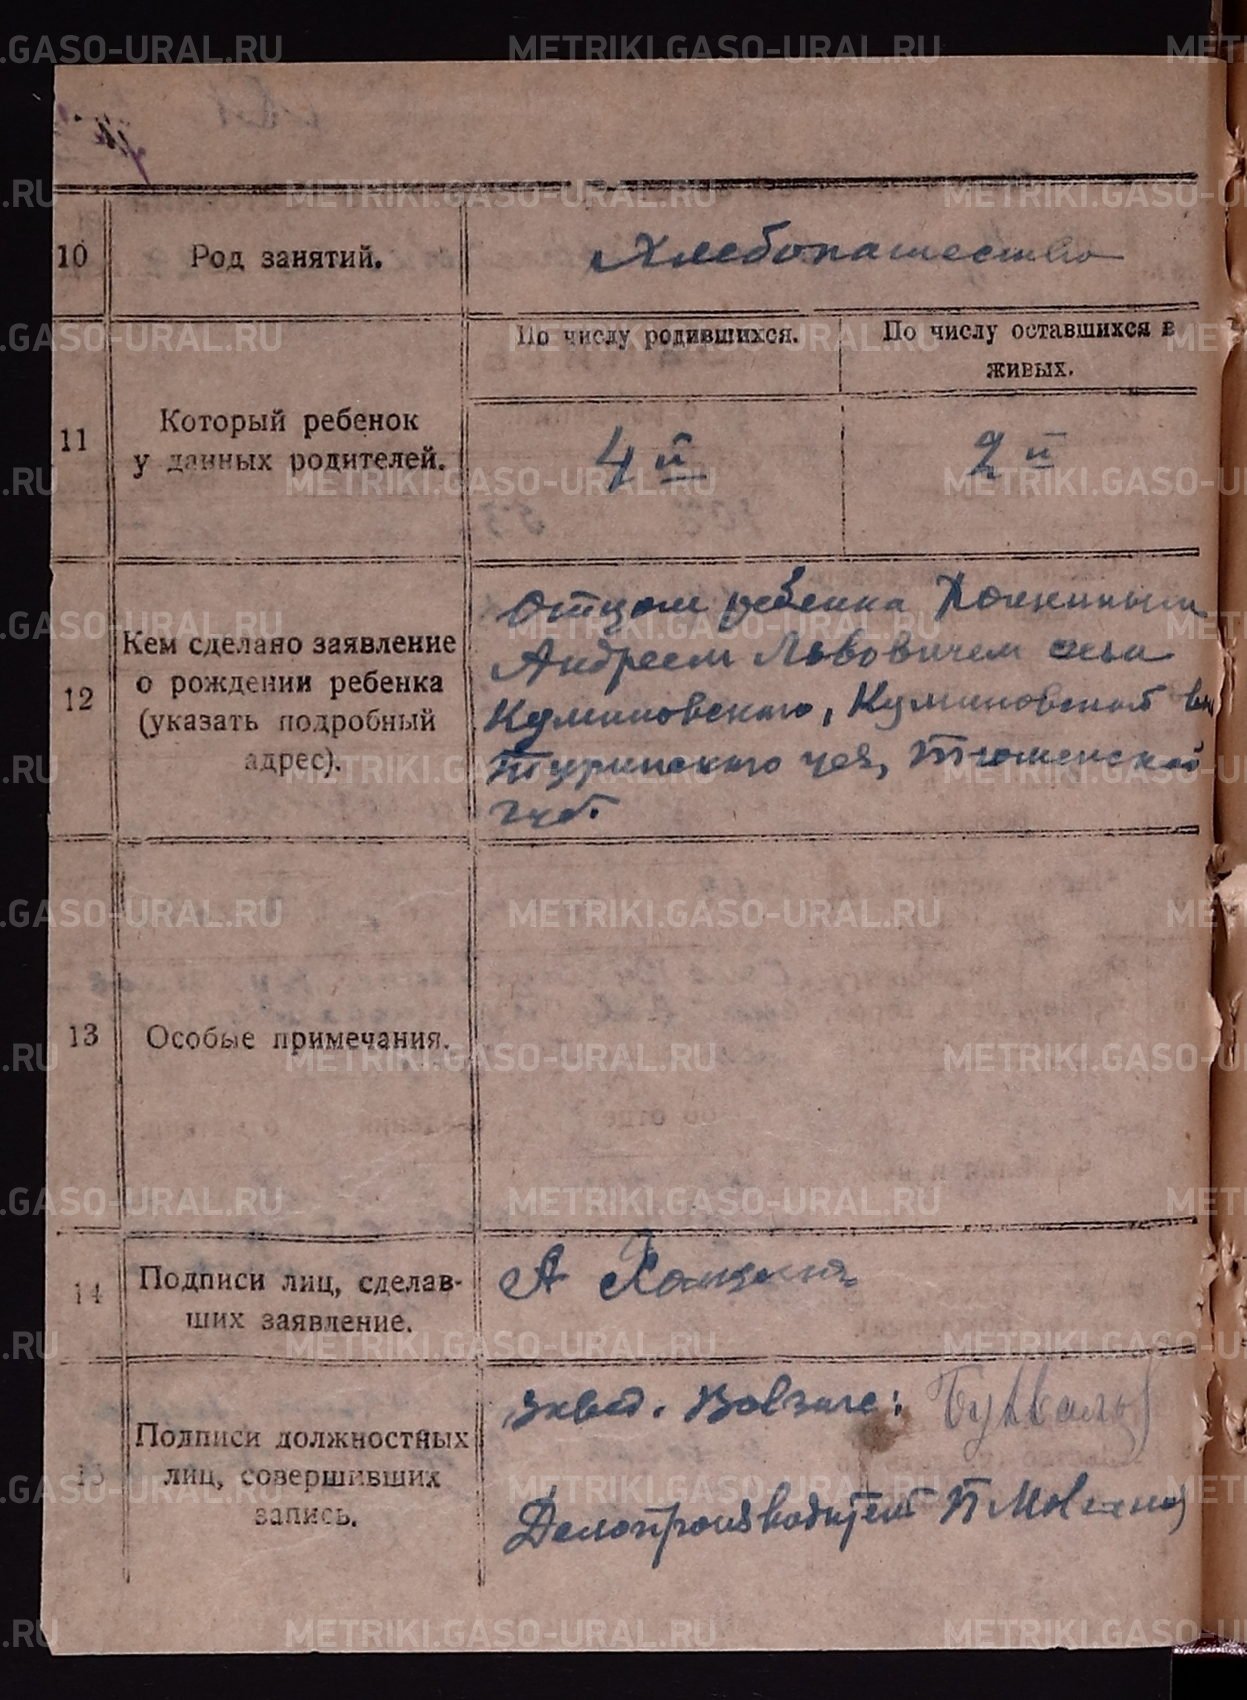 10
Род занятий.
Хлебопашество
11
Который ребенок
у данных родителей.
По числу родившихся.
По числу оставшихся в
живых.
4й
2й
12
Кем сделано заявление
о рождении ребенка
(указать подробный
адрес).
Отцом ребенка
Андреем Львовичем села
Куминовского, Куминовской
Туринского уез, Тюменской
губ.
13
Особые примечания.
14
Подписи лиц, сделав-
ших заявление.
А
15
Подписи должностных
лиц, совершивших
запись.
Завед. Волзагс:
Делопроизводитель П
METRIKI.GASO-URAL.RU